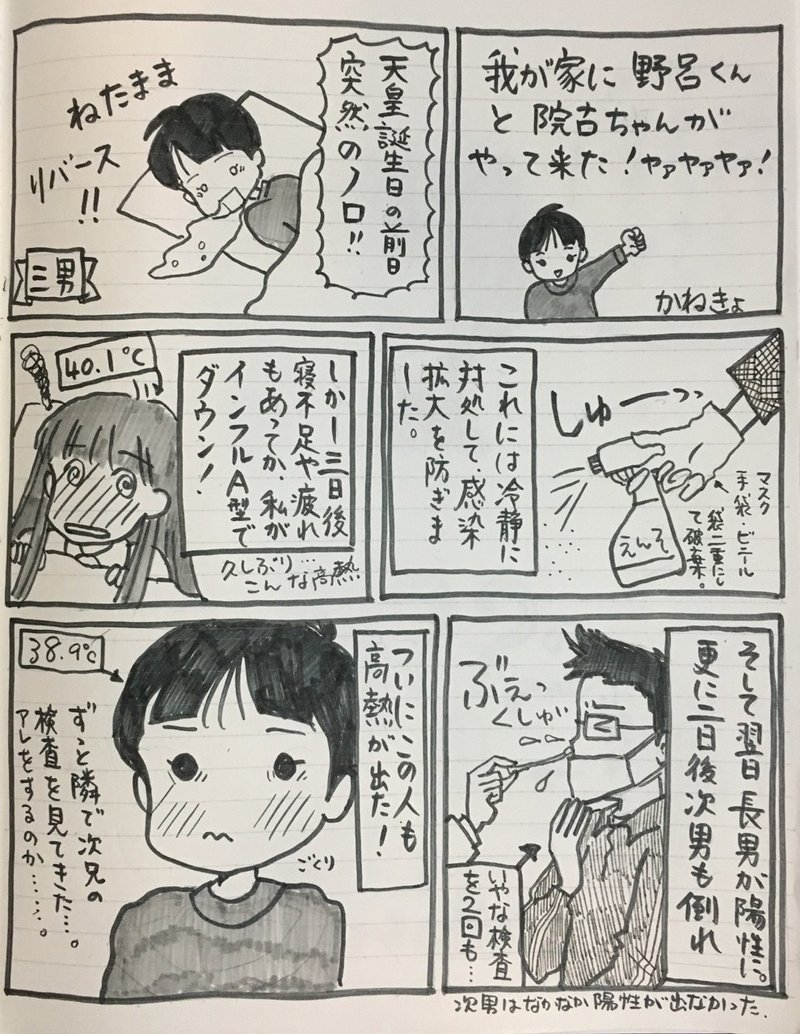 我が家に野呂くん
と院古ちゃんが
やって来た！ヤァヤァヤァ！
かねきょ
天皇誕生日の前日
突然のノロ!!
ねたまま
リバース
!!
三男
これには冷静に
対処して、感染
拡大を防ぎま
した。
しゅーっっ
えんそ
マスク
手袋・ビニール
袋二重にし
て破棄。
しかし三日後
寝不足や疲れ
もあってか、私が
インフルA型で
ダウン！
40.1℃
久しぶり…
こんな高熱
そして翌日長男が陽性に。
更に二日後次男も倒れ
ぶえっ
くしゅっ
いやな検査
を2回も…
次男はなかなか陽性が出なかった.
ついにこの人も
高熱が出た！
38.9℃
ずっと隣で次兄の
検査を見てきた…。
アレをするのか……。
ごくり